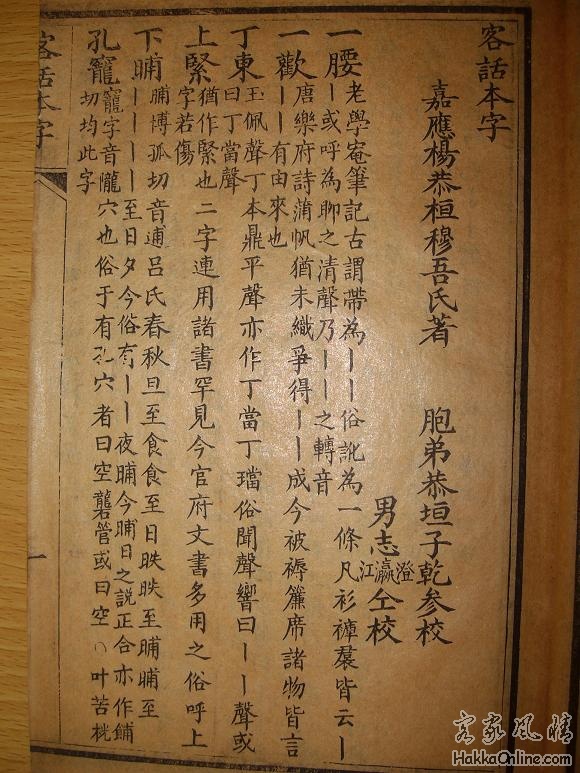 客話本字
嘉應楊恭桓穆吾氏著　胞弟恭垣子乾參校
男志澄瀛江仝校
一腰 老學菴筆記古謂帶為｜｜俗訛為一條凡衫褲裙皆云｜
｜或呼為聊之清聲乃｜｜之轉音
一歡 唐樂府詩蒲帆猶未織爭得｜｜成今被褥簾席諸物皆言
｜｜有由來也
丁東 玉佩聲丁本鼎平聲亦作丁當丁璫俗聞聲響曰｜｜聲或
曰丁當聲
上緊 猶作緊也二字連用諸書罕見今官府文書多用之俗呼上
字若傷
下晡 晡博孤切音逋呂氏春秋旦至食食至日昳昳至晡晡至
｜｜｜｜至日夕今俗有｜｜夜晡今晡日之說正合亦作餔
孔竉 竉字音㦕穴也俗于有孔穴者曰空礱管或曰空叶苦桄
切均此字
客話本字
一
客家风情
HakkaOnline.com